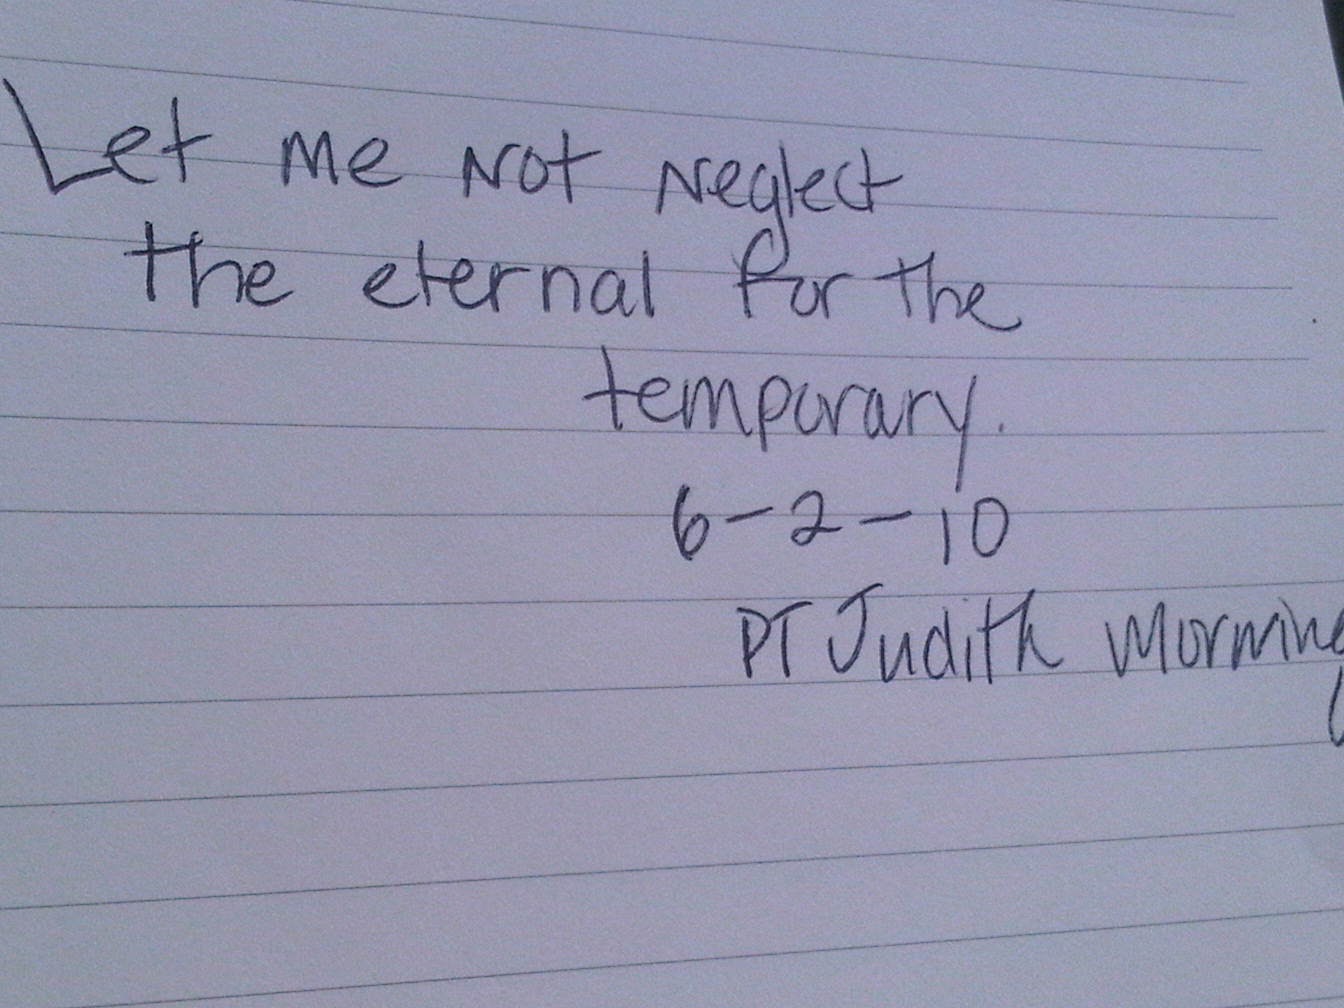 Let me Not Neglect
the eternal for the
temporary.
6-2-10
PT Judith Morning